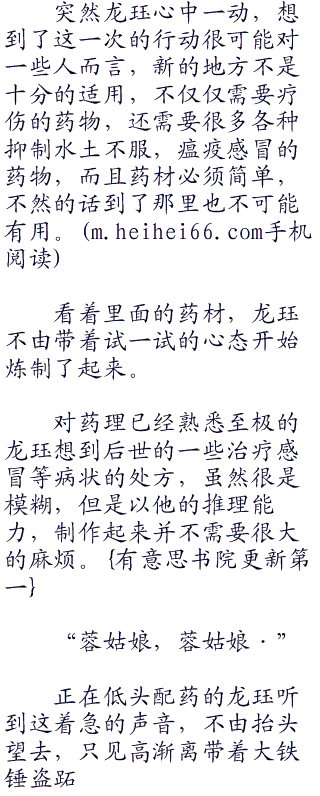 突然龙珏心中一动，想
到了这一次的行动很可能对
一些人而言，新的地方不是
十分的适用，不仅仅需要疗
伤的药物，还需要很多各种
抑制水土不服，瘟疫感冒的
药物，而且药材必须简单，
不然的话到了那里也不可能
有用。(m.heihei66.com手机
阅读)
看着里面的药材，龙珏
不由带着试一试的心态开始
炼制了起来。
对药理已经熟悉至极的
龙珏想到后世的一些治疗感
冒等病状的处方，虽然很是
模糊，但是以他的推理能
力，制作起来并不需要很大
的麻烦。{有意思书院更新第
一}
“蓉姑娘，蓉姑娘·”
正在低头配药的龙珏听
到这着急的声音，不由抬头
望去，只见高渐离带着大铁
锤盗跖